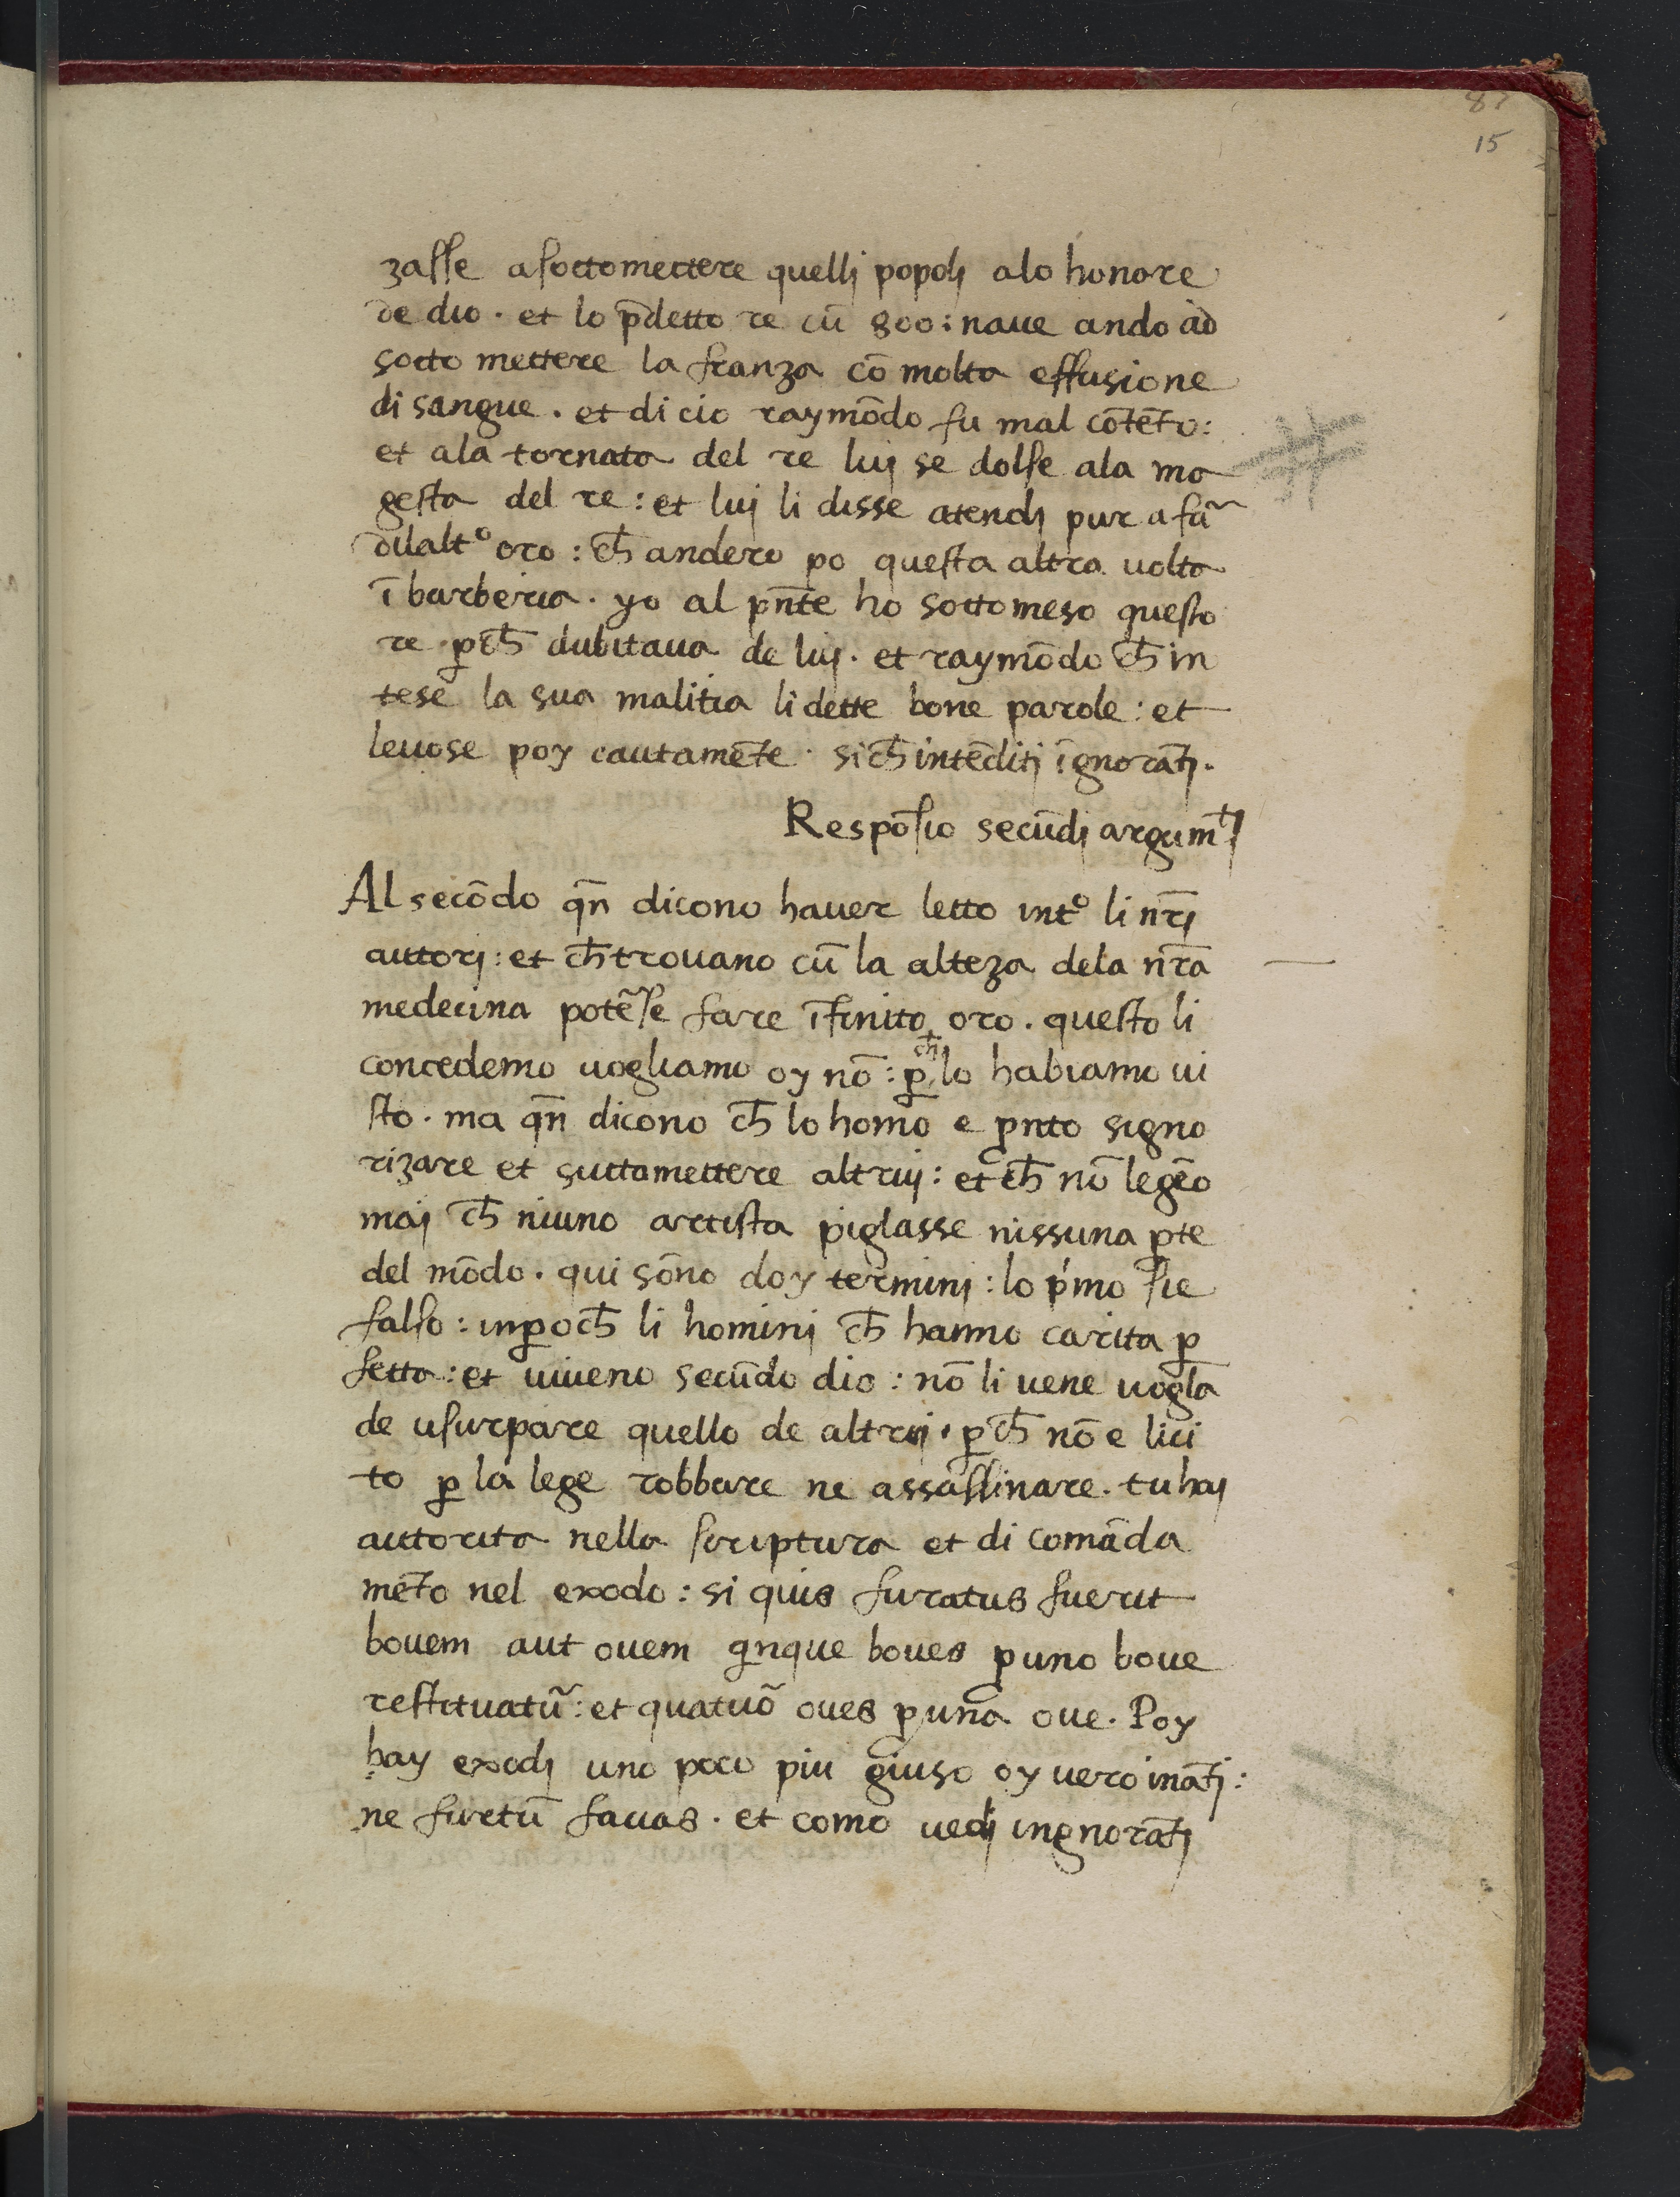 87
15
zasse asottomettere quellj popolj alo honore
de dio. et lo p̄detto re cū 800: naue ando ad
sotto mettere la franza cō molta effusione
di sangue. et di cio raymōdo fu mal cōtēto:
et ala tornata del re luj se dolse ala ma
gesta del re: et luj li disse atendj pur a far̃
dilaltº oro: ch̄ andero po questa altra uolta
ī barberia. yo al pn̄te ho sottomeso questo
re. ꝑch̄ dubitaua de luj. et raymōdo ch̄ in
tese la sua malitia li dette bone parole: et
leuose poy cautamēte. sich̄ intēditj īgnorātj.
Respōsio secūdj argumtj
Al secōdo qn̄ dicono hauer letto intº li nr̄j
autorj: et ch̄ trouano cū la alteza dela nr̄a
medecina potēse fare īfinito oro. questo li
concedemo uogliamo oy nō: ꝑch̄ lo habiamo ui
sto. ma qn̄ dicono ch̄ lo homo e pn̄to signo
rizare et suttomettere altruj: et ch̄ nō legēo
maj ch̄ niuno artista piglasse nissuna ꝑte
del mōdo. qui sōno doy terminj: lo pimo sie
falso: inꝑoch̄ li hominj ch̄ hanno carita ꝑ
fetta: et uiueno secūdo dio: nō li uene uogla
de usurpare quello de altruj. ꝑch̄ nō e lici
to ꝑ la lege robbare ne assassinare. tu haj
autorita nella scriptura et di comāda
mēto nel exodo: si quis furatus fuerit
bouem aut ouem qinque boues ꝑ uno boue
restituatur̃: et quatuor̃ oues ꝑ una oue. Poy
hay exodj uno poco piu giuso oy uero inātj:
ne furtū facias. et como uedj ingnorātj